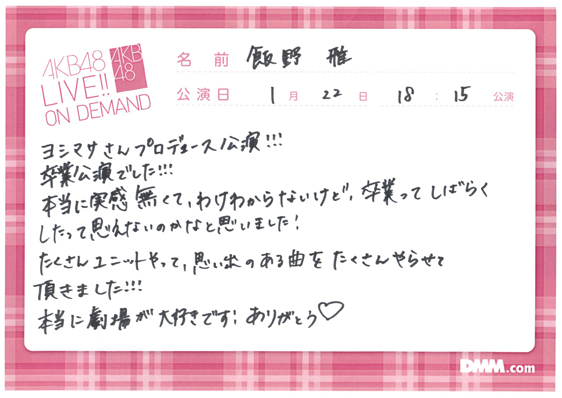 AKB48
LIVE!!
ON DEMAND
AKB
48
名前 飯野 雅
公演日 1月22日 18:15公演
ヨシマサさんプロデュース公演!!!
卒業公演でした!!!
本当に実感無くて、わけわからないけど、卒業ってしばらく
したって思えないのかなと思いました!
たくさんユニットやって、思い出のある曲をたくさんやらせて
頂きました!!!
本当に劇場が大好きです! ありがとう♡
DMM.com